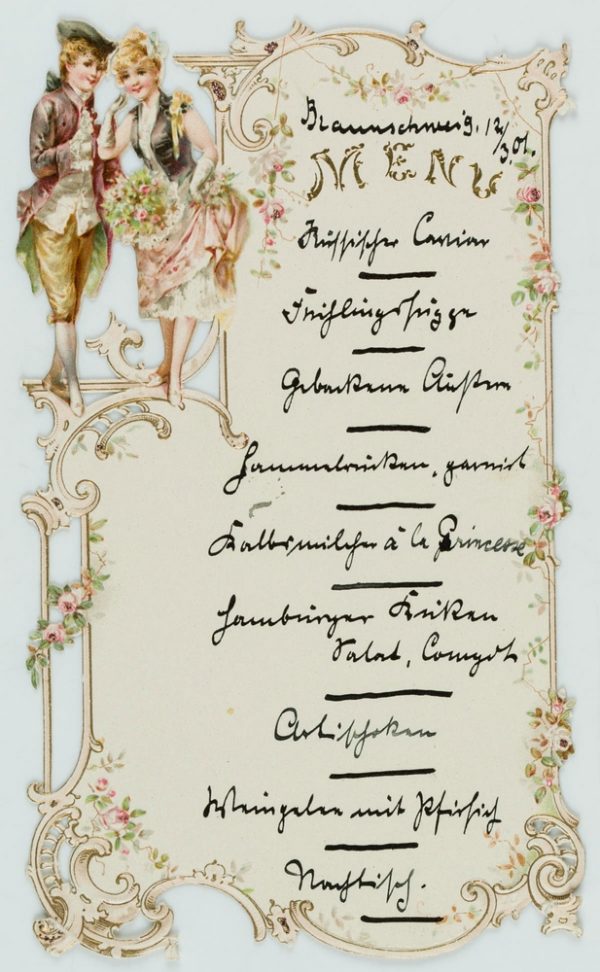 Braunschweig, 12/3.01.
MENU
Russischer Caviar
Frühlingssuppe
Gebackene Austern
Hammelrücken, garnirt
Kalbsmilcher à la Princesse
Hamburger Küken
Salat, Compot
Artischoken
Weingelee mit Pfirsich
Nachtisch.